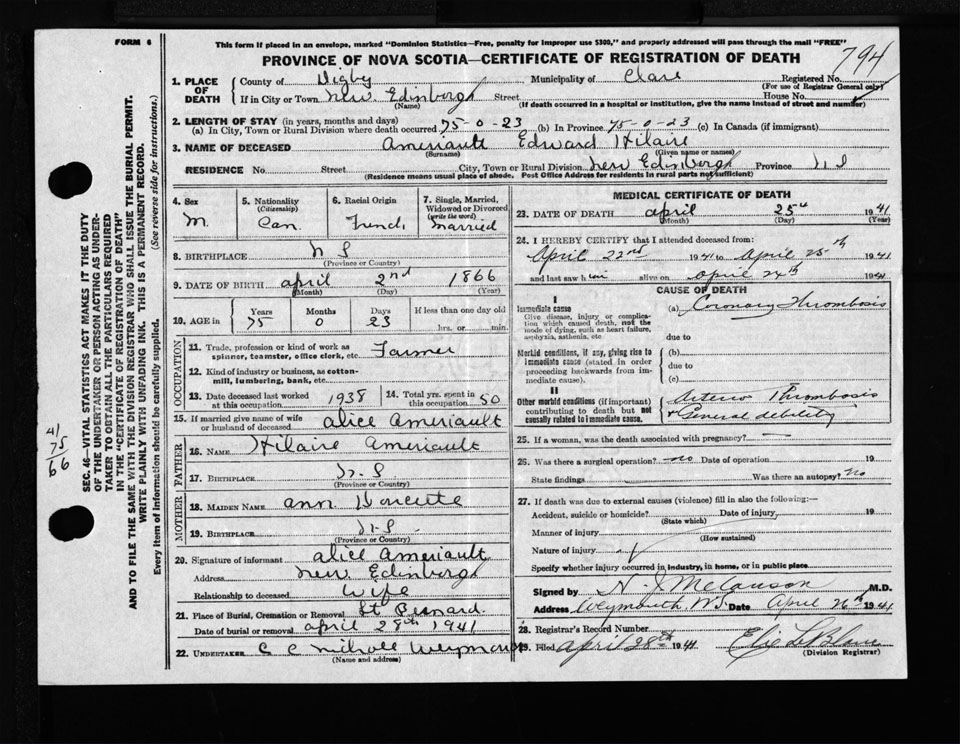 FORM 6
This form if placed in an envelope, marked "Dominion Statistics—Free, penalty for improper use $300," and properly addressed will pass through the mail "FREE"
794
PROVINCE OF NOVA SCOTIA—CERTIFICATE OF REGISTRATION OF DEATH
1. PLACE OF DEATH County of Digby Municipality of Clare Registered No.
(For use of Registrar General only)
If in City or Town New Edinburgh Street House No.
(Name) (If death occurred in a hospital or institution, give the name instead of street and number)
2. LENGTH OF STAY (in years, months and days)
(a) In City, Town or Rural Division where death occurred 75-0-23 (b) In Province 75-0-23 (c) In Canada (if immigrant)
3. NAME OF DECEASED Ameriault Edward Hilaire
(Surname) (Given name or names)
RESIDENCE No. Street City, Town or Rural Division New Edinburgh Province N S
(Residence means usual place of abode. Post Office Address for residents in rural parts not sufficient)
4. Sex M.
5. Nationality (Citizenship) Can.
6. Racial Origin French
7. Single, Married, Widowed or Divorced (write the word) Married
8. BIRTHPLACE N S
(Province or Country)
9. DATE OF BIRTH April 2nd 1866
(Month) (Day) (Year)
10. AGE in Years Months Days If less than one day old
75 0 23 hrs. or min.
OCCUPATION
11. Trade, profession or kind of work as spinner, teamster, office clerk, etc. Farmer
12. Kind of industry or business, as cotton-mill, lumbering, bank, etc.
13. Date deceased last worked at this occupation 1938
14. Total yrs. spent in this occupation 50
15. If married give name of wife or husband of deceased Alice Ameriault
FATHER
16. NAME Hilaire Ameriault
17. BIRTHPLACE N.S
(Province or Country)
MOTHER
18. MAIDEN NAME Ann
19. BIRTHPLACE N.S.
(Province or Country)
20. Signature of informant Alice Ameriault
Address New Edinburgh
Relationship to deceased Wife
21. Place of Burial, Cremation or Removal St Bernard.
Date of burial or removal April 28th 1941
22. UNDERTAKER C C Weymouth
(Name and address)
MEDICAL CERTIFICATE OF DEATH
23. DATE OF DEATH April 25th 1941
(Month) (Day) (Year)
24. I HEREBY CERTIFY that I attended deceased from:
April 22nd 1941 to April 25th 1941
and last saw him alive on April 24th 1941
CAUSE OF DEATH
I
Immediate cause
Give disease, injury or complication which caused death, not the mode of dying, such as heart failure, asphyxia, asthenia, etc.
(a) Coronary Thrombosis
due to
Morbid conditions, if any, giving rise to immediate cause (stated in order proceeding backwards from immediate cause).
(b)
due to
(c)
II
Other morbid conditions (if important) contributing to death but not causally related to immediate cause.
Arterio Thrombosis
& General debility
25. If a woman, was the death associated with pregnancy? —
26. Was there a surgical operation? no Date of operation 19
State findings Was there an autopsy? No
27. If death was due to external causes (violence) fill in also the following:—
Accident, suicide or homicide? Date of injury 19
(State which)
Manner of injury
(How sustained)
Nature of injury
Specify whether injury occurred in industry, in home, or in public place
Signed by M.D.
Address Weymouth, N.S. Date April 26th 1941
28. Registrar's Record Number
29. Filed April 28th 1941 LeBlanc
(Division Registrar)
SEC. 46—VITAL STATISTICS ACT MAKES IT THE DUTY
OF THE UNDERTAKER OR PERSON ACTING AS UNDER-
TAKER TO OBTAIN ALL THE PARTICULARS REQUIRED
IN THE "CERTIFICATE OF REGISTRATION OF DEATH"
AND TO FILE THE SAME WITH THE DIVISION REGISTRAR WHO SHALL ISSUE THE BURIAL PERMIT.
WRITE PLAINLY WITH UNFADING INK. THIS IS A PERMANENT RECORD.
Every item of information should be carefully supplied. (See reverse side for instructions.)
41
75
66